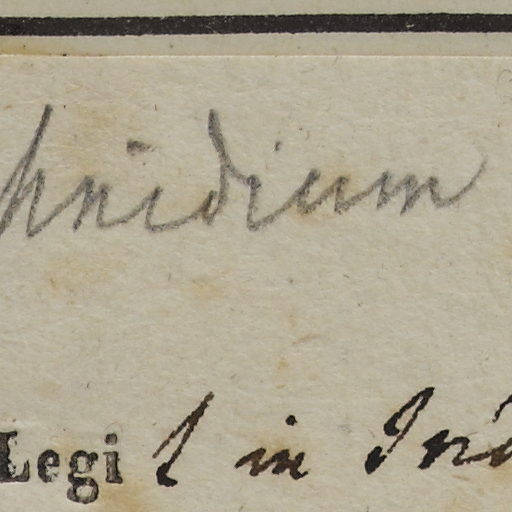 hnidium
Legi l in Ind